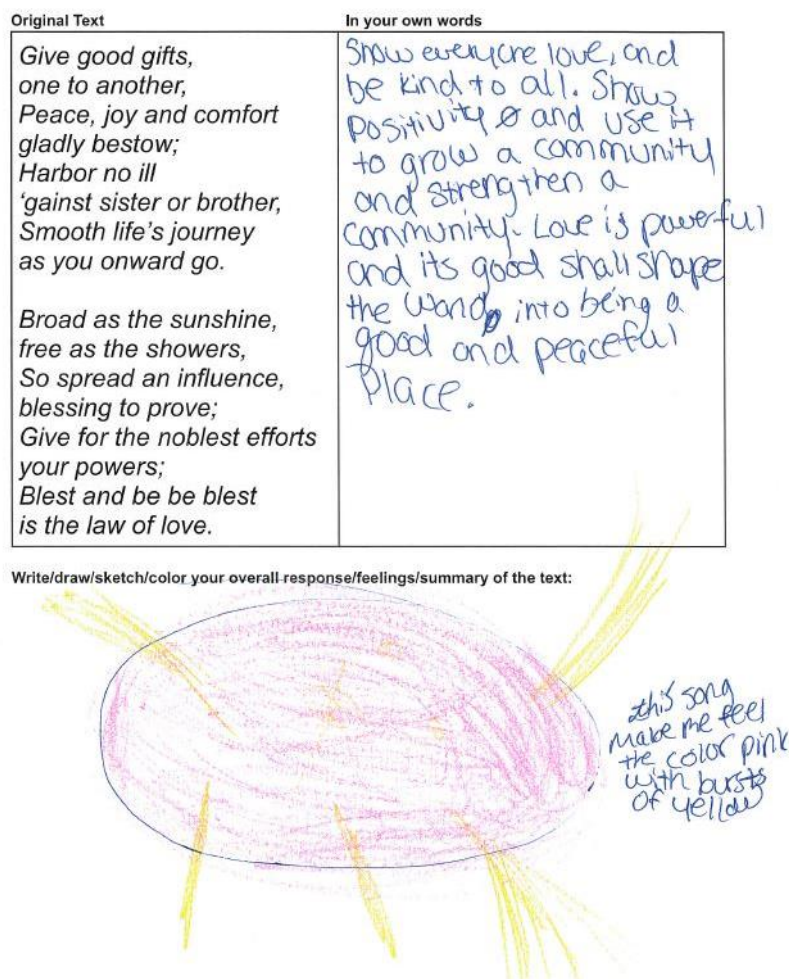 Original Text
Give good gifts,
one to another,
Peace, joy and comfort
gladly bestow;
Harbor no ill
‘gainst sister or brother,
Smooth life’s journey
as you onward go.
Broad as the sunshine,
free as the showers,
So spread an influence,
blessing to prove;
Give for the noblest efforts
your powers;
Blest and be be blest
is the law of love.
In your own words
Show everyone love, and
be kind to all. Show
positivity and use it
to grow a community
and strengthen a
community. Love is powerful
and its good shall shape
the into being a
good and peaceful
place.
Write/draw/sketch/color your overall response/feelings/summary of the text:
this song
make me feel
the color pink
with bursts
of yellow